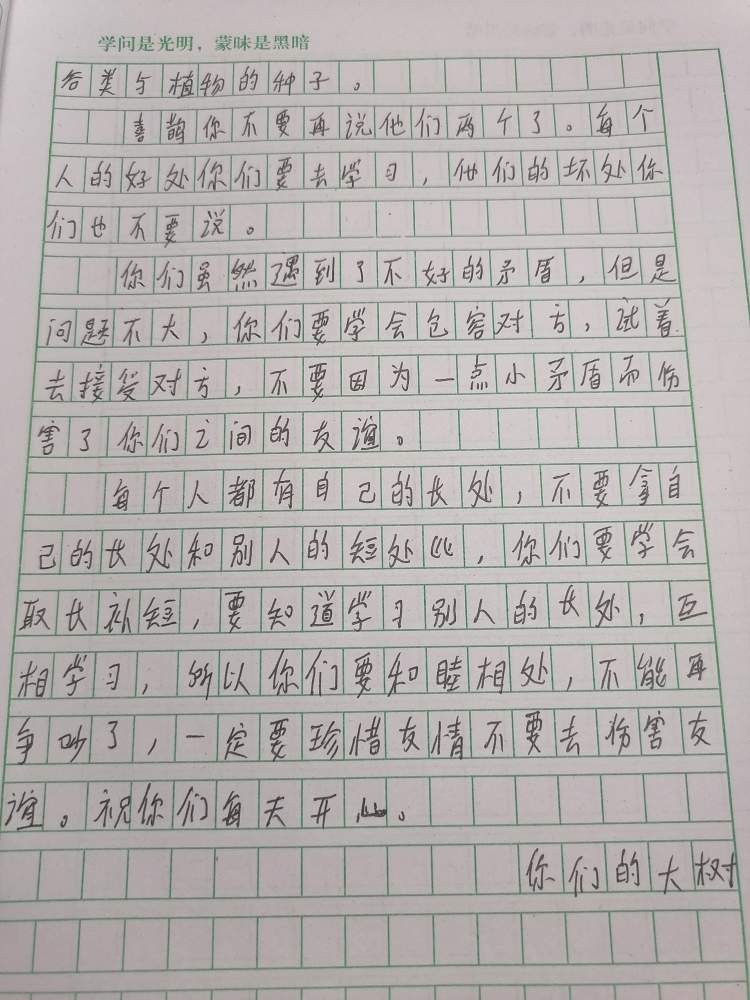 学问是光明，蒙昧是黑暗
各类与植物的种子。
喜鹊你不要再说他们两个了。每个
人的好处你们要去学习，他们的坏处你
们也不要说。
你们虽然遇到了不好的矛盾，但是
问题不大，你们要学会包容对方，试着
去接受对方，不要因为一点小矛盾而伤
害了你们之间的友谊。
每个人都有自己的长处，不要拿自
己的长处和别人的短处比，你们要学会
取长补短，要知道学习别人的长处，互
相学习，所以你们要和睦相处，不能再
争吵了，一定要珍惜友情不要去伤害友
谊。祝你们每天开心。
你们的大树